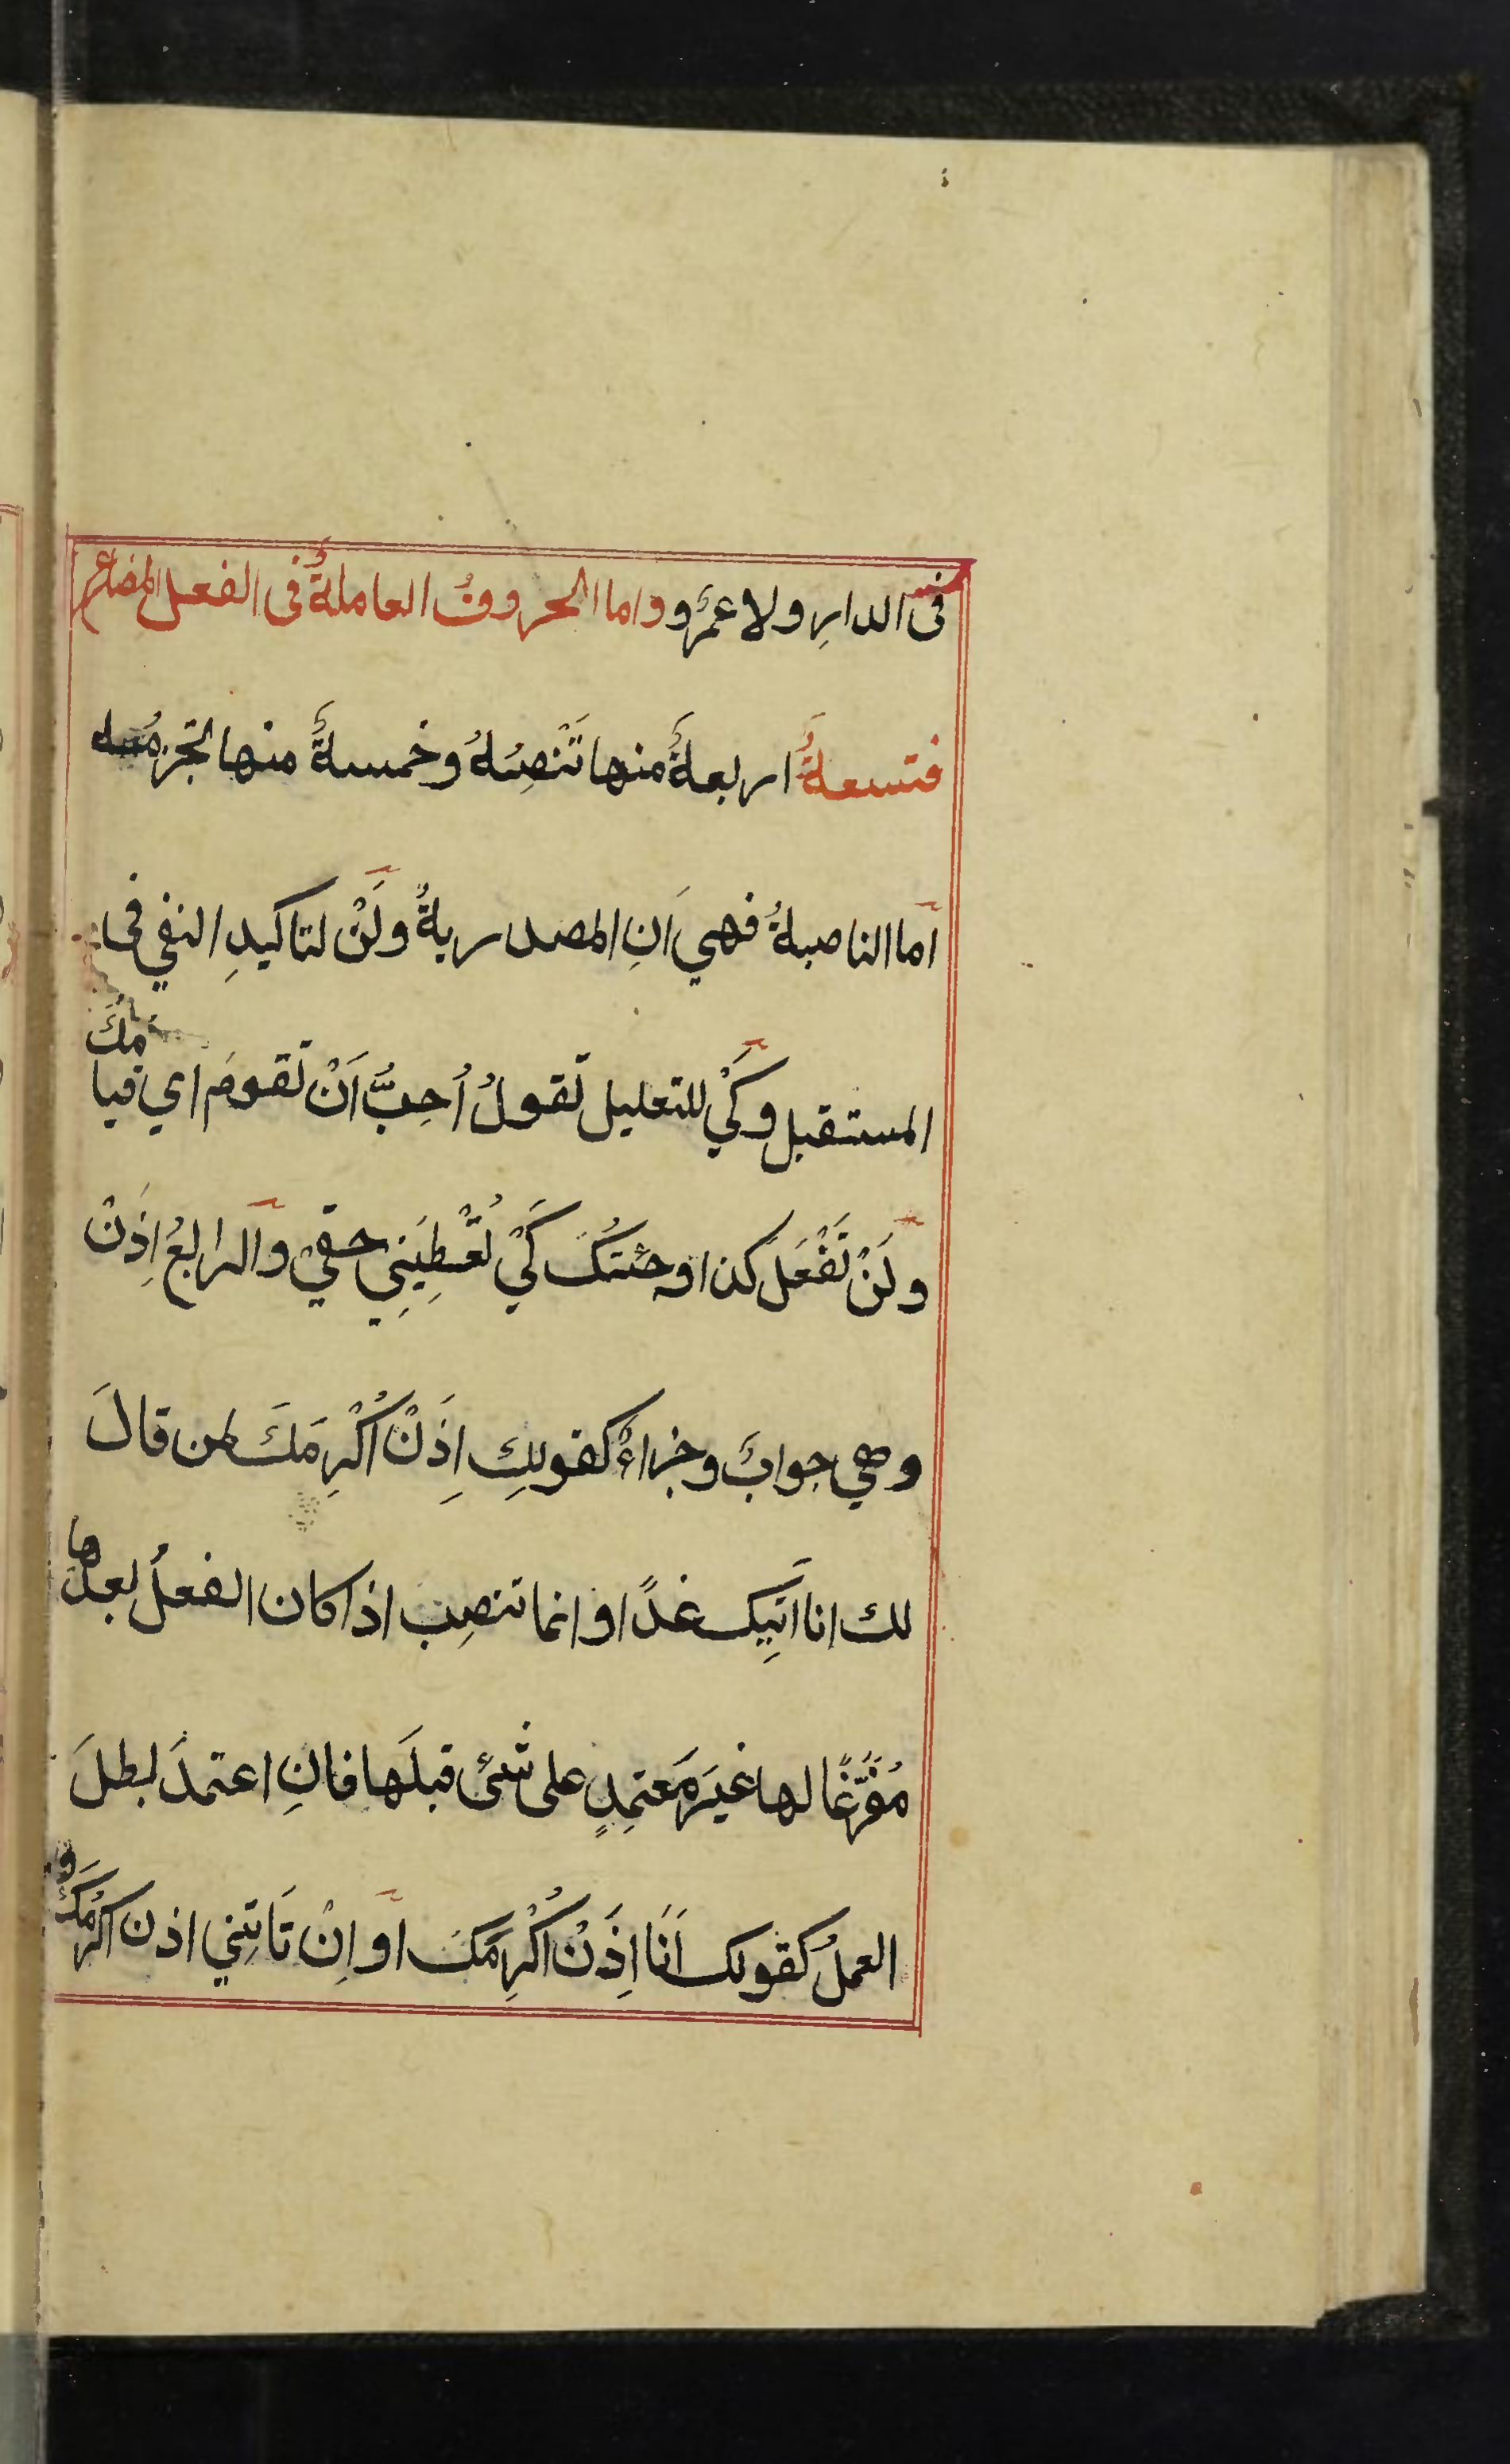 فى الدارِ ولا عمرٌو واما الحروفُ العاملةُ فى الفعل المضارع
فتسعةٌ اربعةٌ منها تَنْصِبُهُ وخمسةٌ منها تجزمُه
اما الناصبةُ فهي اَنِ المصدريةُ ولَنْ لتاكيدِ النفي فى
المستقبل وكَيْ للتعليل تَقولُ اُحِبُّ اَنْ تَقومَ اي قيامَكَ
ولَنْ تَفْعَلَ كذا وجئتُكَ كَيْ تُعْطِيَنِي حقي والرابعُ اِذَنْ
وهي جوابٌ وجزاءٌ كقولِك اِذَنْ اُكْرِمَكَ لمن قالَ
لك انا اَتِيك غدًا وانما تنصِب اذا كان الفعلُ بعدَها
مُفَرَّغًا لها غيرَ مَعتمِدٍ على شئ قبلَها فانِ اعتمدَ بطلَ
العملُ كقولك اَنَا اِذَنْ اُكْرِمَكَ او اِنْ تَاتِنِي اذن اكرمُكَ و